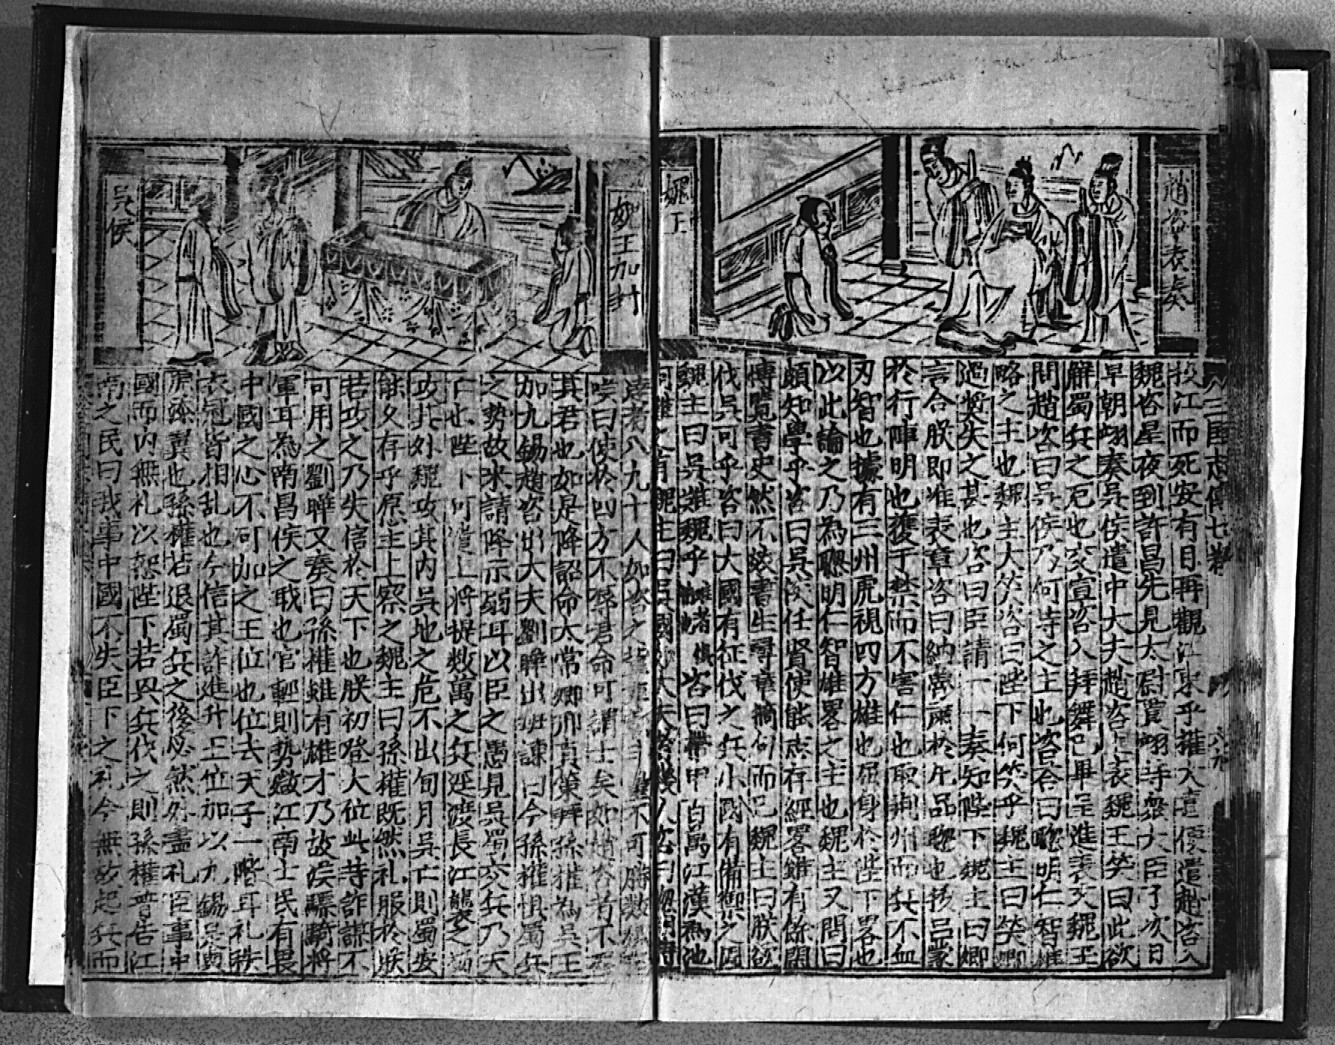 趙咨表奏
魏王
投江而死安有目再觀江東乎權大喜便遣趙咨入
魏咨星夜到許昌先見太尉賈翊等衆大臣了次日
早朝翊奏吳侯遣中大夫趙咨上表魏王笑曰此欲
解蜀兵之厄也交宣咨入拜舞已畢呈進表文魏王
問趙咨曰吳侯乃何等之主也咨答曰聰明仁智雄
略之主也魏主大笑咨曰陛下何笑乎魏主曰笑卿
過奬失之甚也咨曰臣請一一奏知陛下魏主曰卿
言合朕即准表章咨曰納魯肅於凡品聰也拔呂蒙
於行陣明也獲于禁而不害仁也取荊州而兵不血
刃智也據有三州虎視四方雄也屈身於陛下畧也
以此論之乃為聰明仁智雄畧之主也魏主又問曰
頗知學乎咨曰吳侯任賢使能志存經畧雖有餘閒
博覽書史然不效書生尋章摘句而已魏主曰朕欲
伐吳可乎咨曰大國有征伐之兵小國有備禦之固
魏主曰吳難魏乎咨曰帶甲百萬江漢為池
何難之有魏主曰吳國如大夫者幾人咨曰聰明特
如王加
吳侯
達者八九十人如咨之輩車載斗量不可勝數魏主
嘆曰使於四方不辱君命可謂士矣如趙咨者不辱
其君也如是降詔命大常卿邢貞策孫權為吳王
加九錫趙咨出大夫劉曄出班諫曰今孫權惧蜀兵
之勢故來請降示弱耳以臣之愚見吳蜀交兵乃天
亡也陛下可遣上將提数萬之兵延渡長江襲之蜀
攻其外魏攻其内吳地之危不出旬月吳亡則蜀安
能久存乎愿主上察之魏主曰孫權既然礼服於朕
若攻之乃失信於天下也朕初登大位此等詐謀不
可用之劉曄又奏曰孫權雖有雄才乃故漢驃騎將
軍耳為南昌侯之职也官輕則勢微江南士民有畏
中國之心不可加之王位也位去天子一階耳礼秩
衣冠皆相乱也今信其詐進升王位加以九錫是與
虎添翼也孫權若退蜀兵之後忽然外盡礼臣事中
國而内無礼以怒陛下若興兵伐之則孫權普告江
南之民曰我事中國不失臣下之礼今無故起兵而